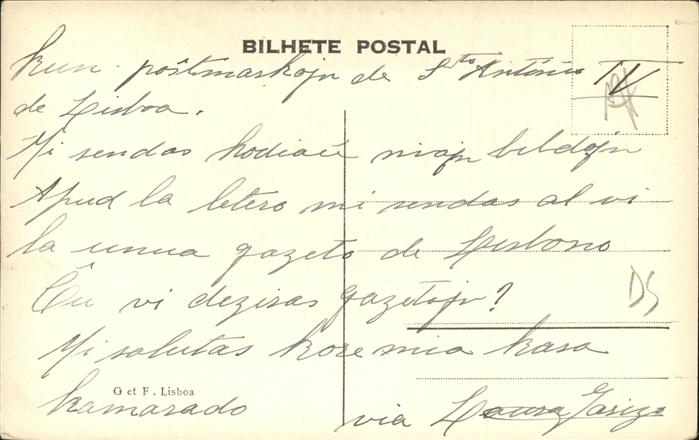 BILHETE POSTAL
kun postmarkojn de Sto António
IV
de Lisboa.
Mi sendas hodiaŭ miajn bildojn
Apud la letero mi sendas al vi
la unua gazeto de Lisbono
Ĉu vi deziras gazetojn?
DS
Mi salutas kore mia kara
G et F. Lisboa
kamarado
via Laura